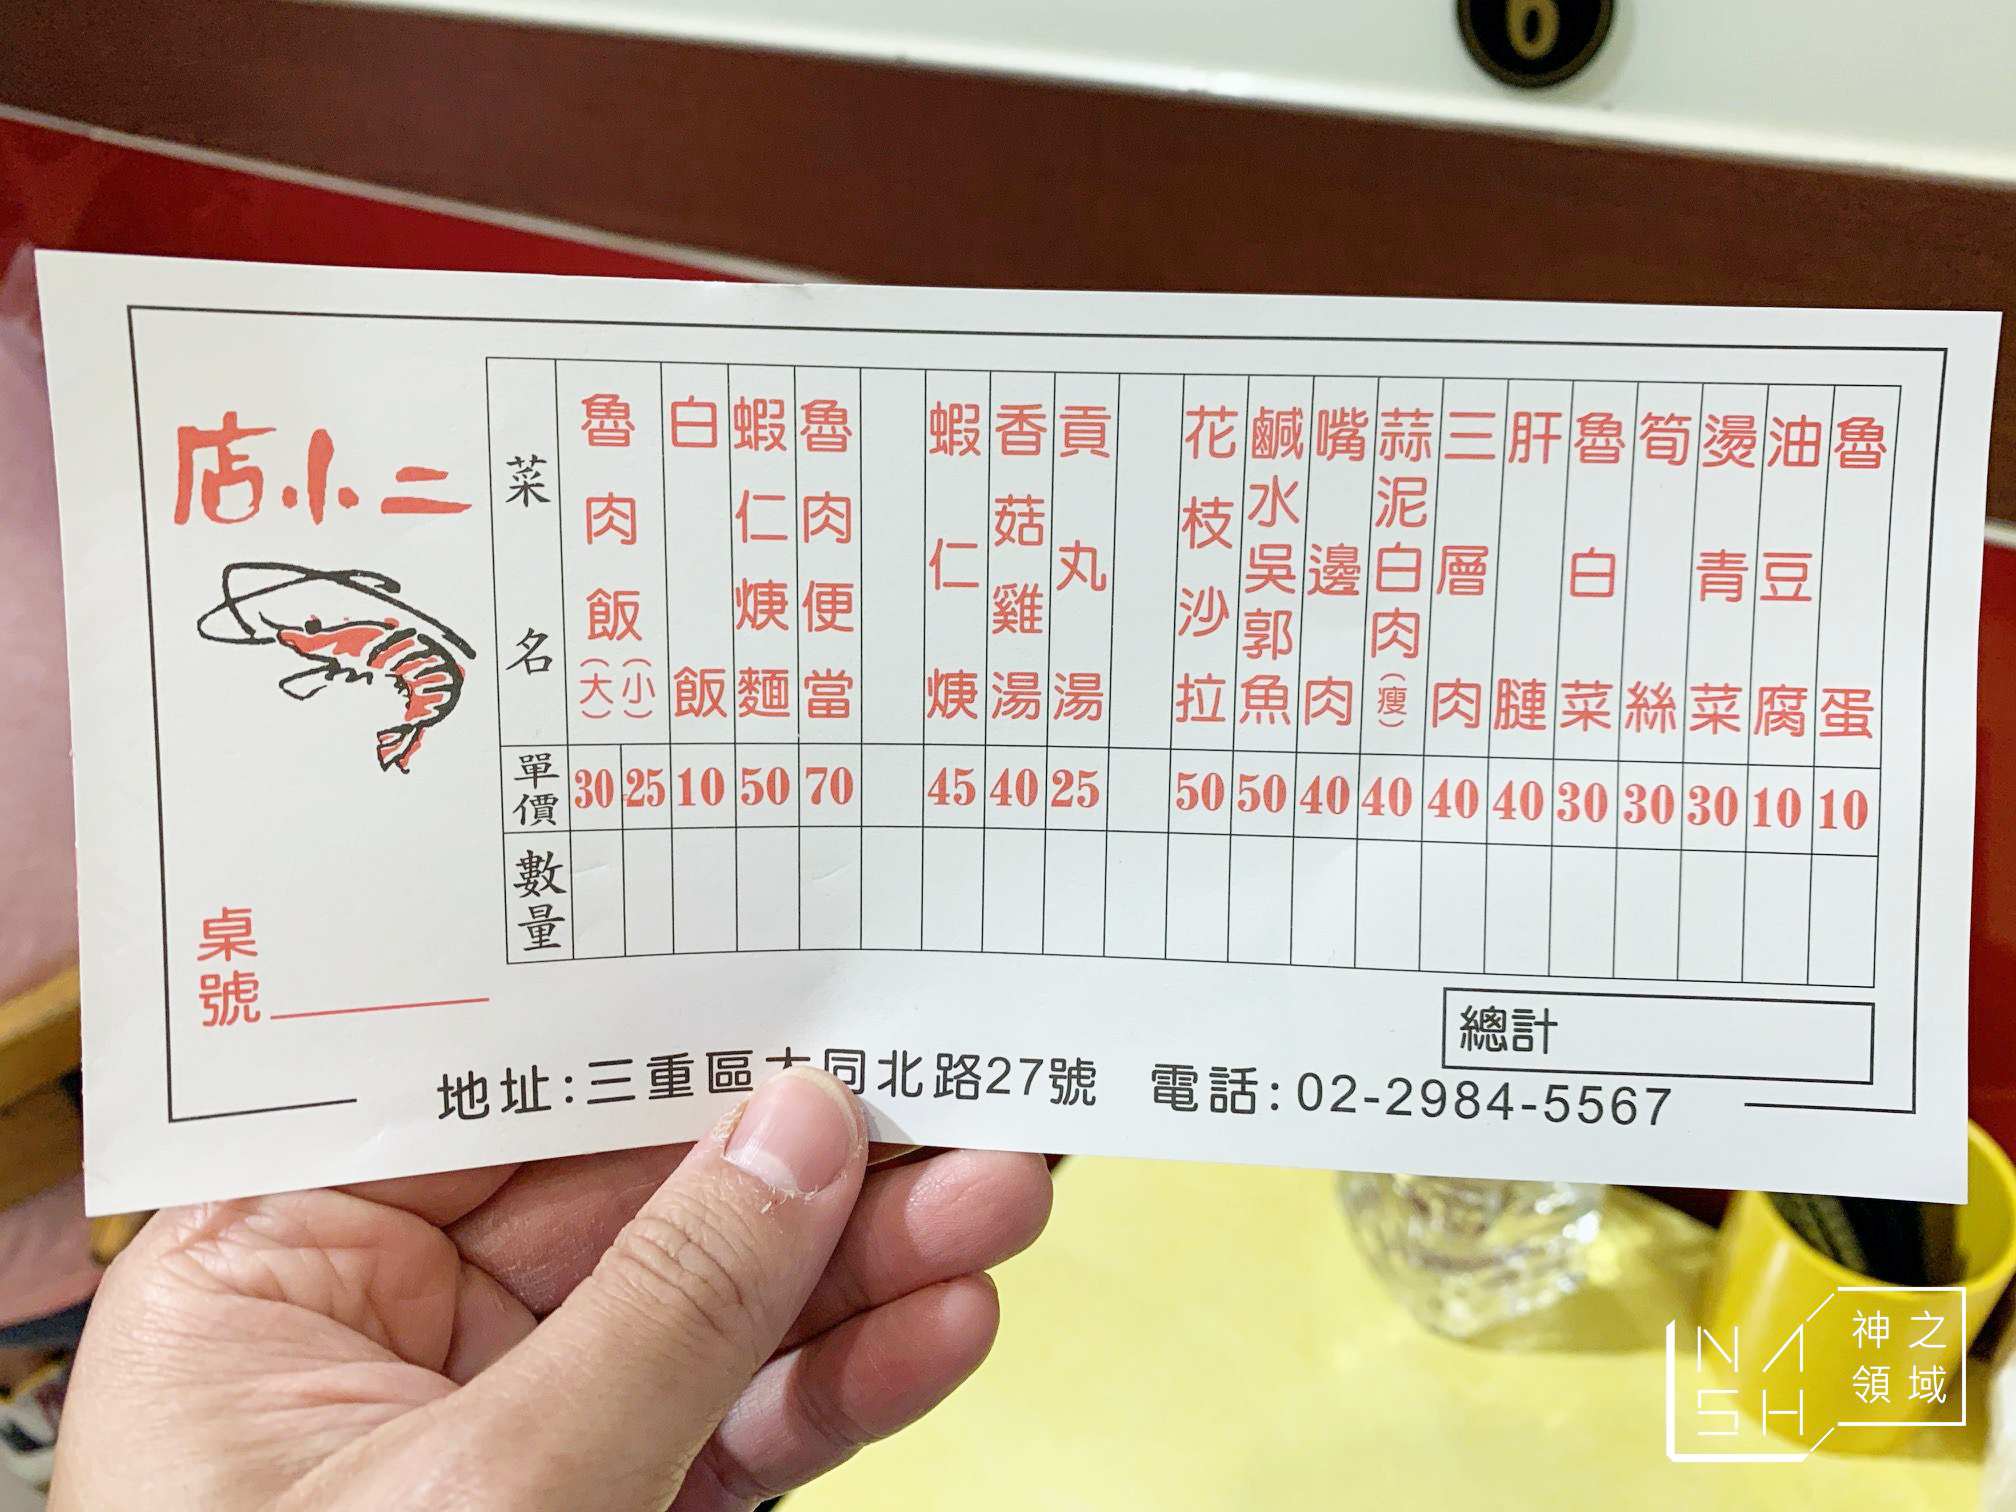 6
店小二
桌號
菜名
單價
數量
魯肉飯(大)(小)
30 25
白飯
10
蝦仁焿麵
50
魯肉便當
70
蝦仁焿
45
香菇雞湯
40
貢丸湯
25
花枝沙拉
50
鹹水吳郭魚
50
嘴邊肉
40
蒜泥白肉(瘦)
40
三層肉
40
肝腱
40
魯白菜
30
筍絲
30
燙青菜
30
油豆腐
10
魯蛋
10
總計
地址:三重區大同北路27號 電話:02-2984-5567
NASH
神之領域